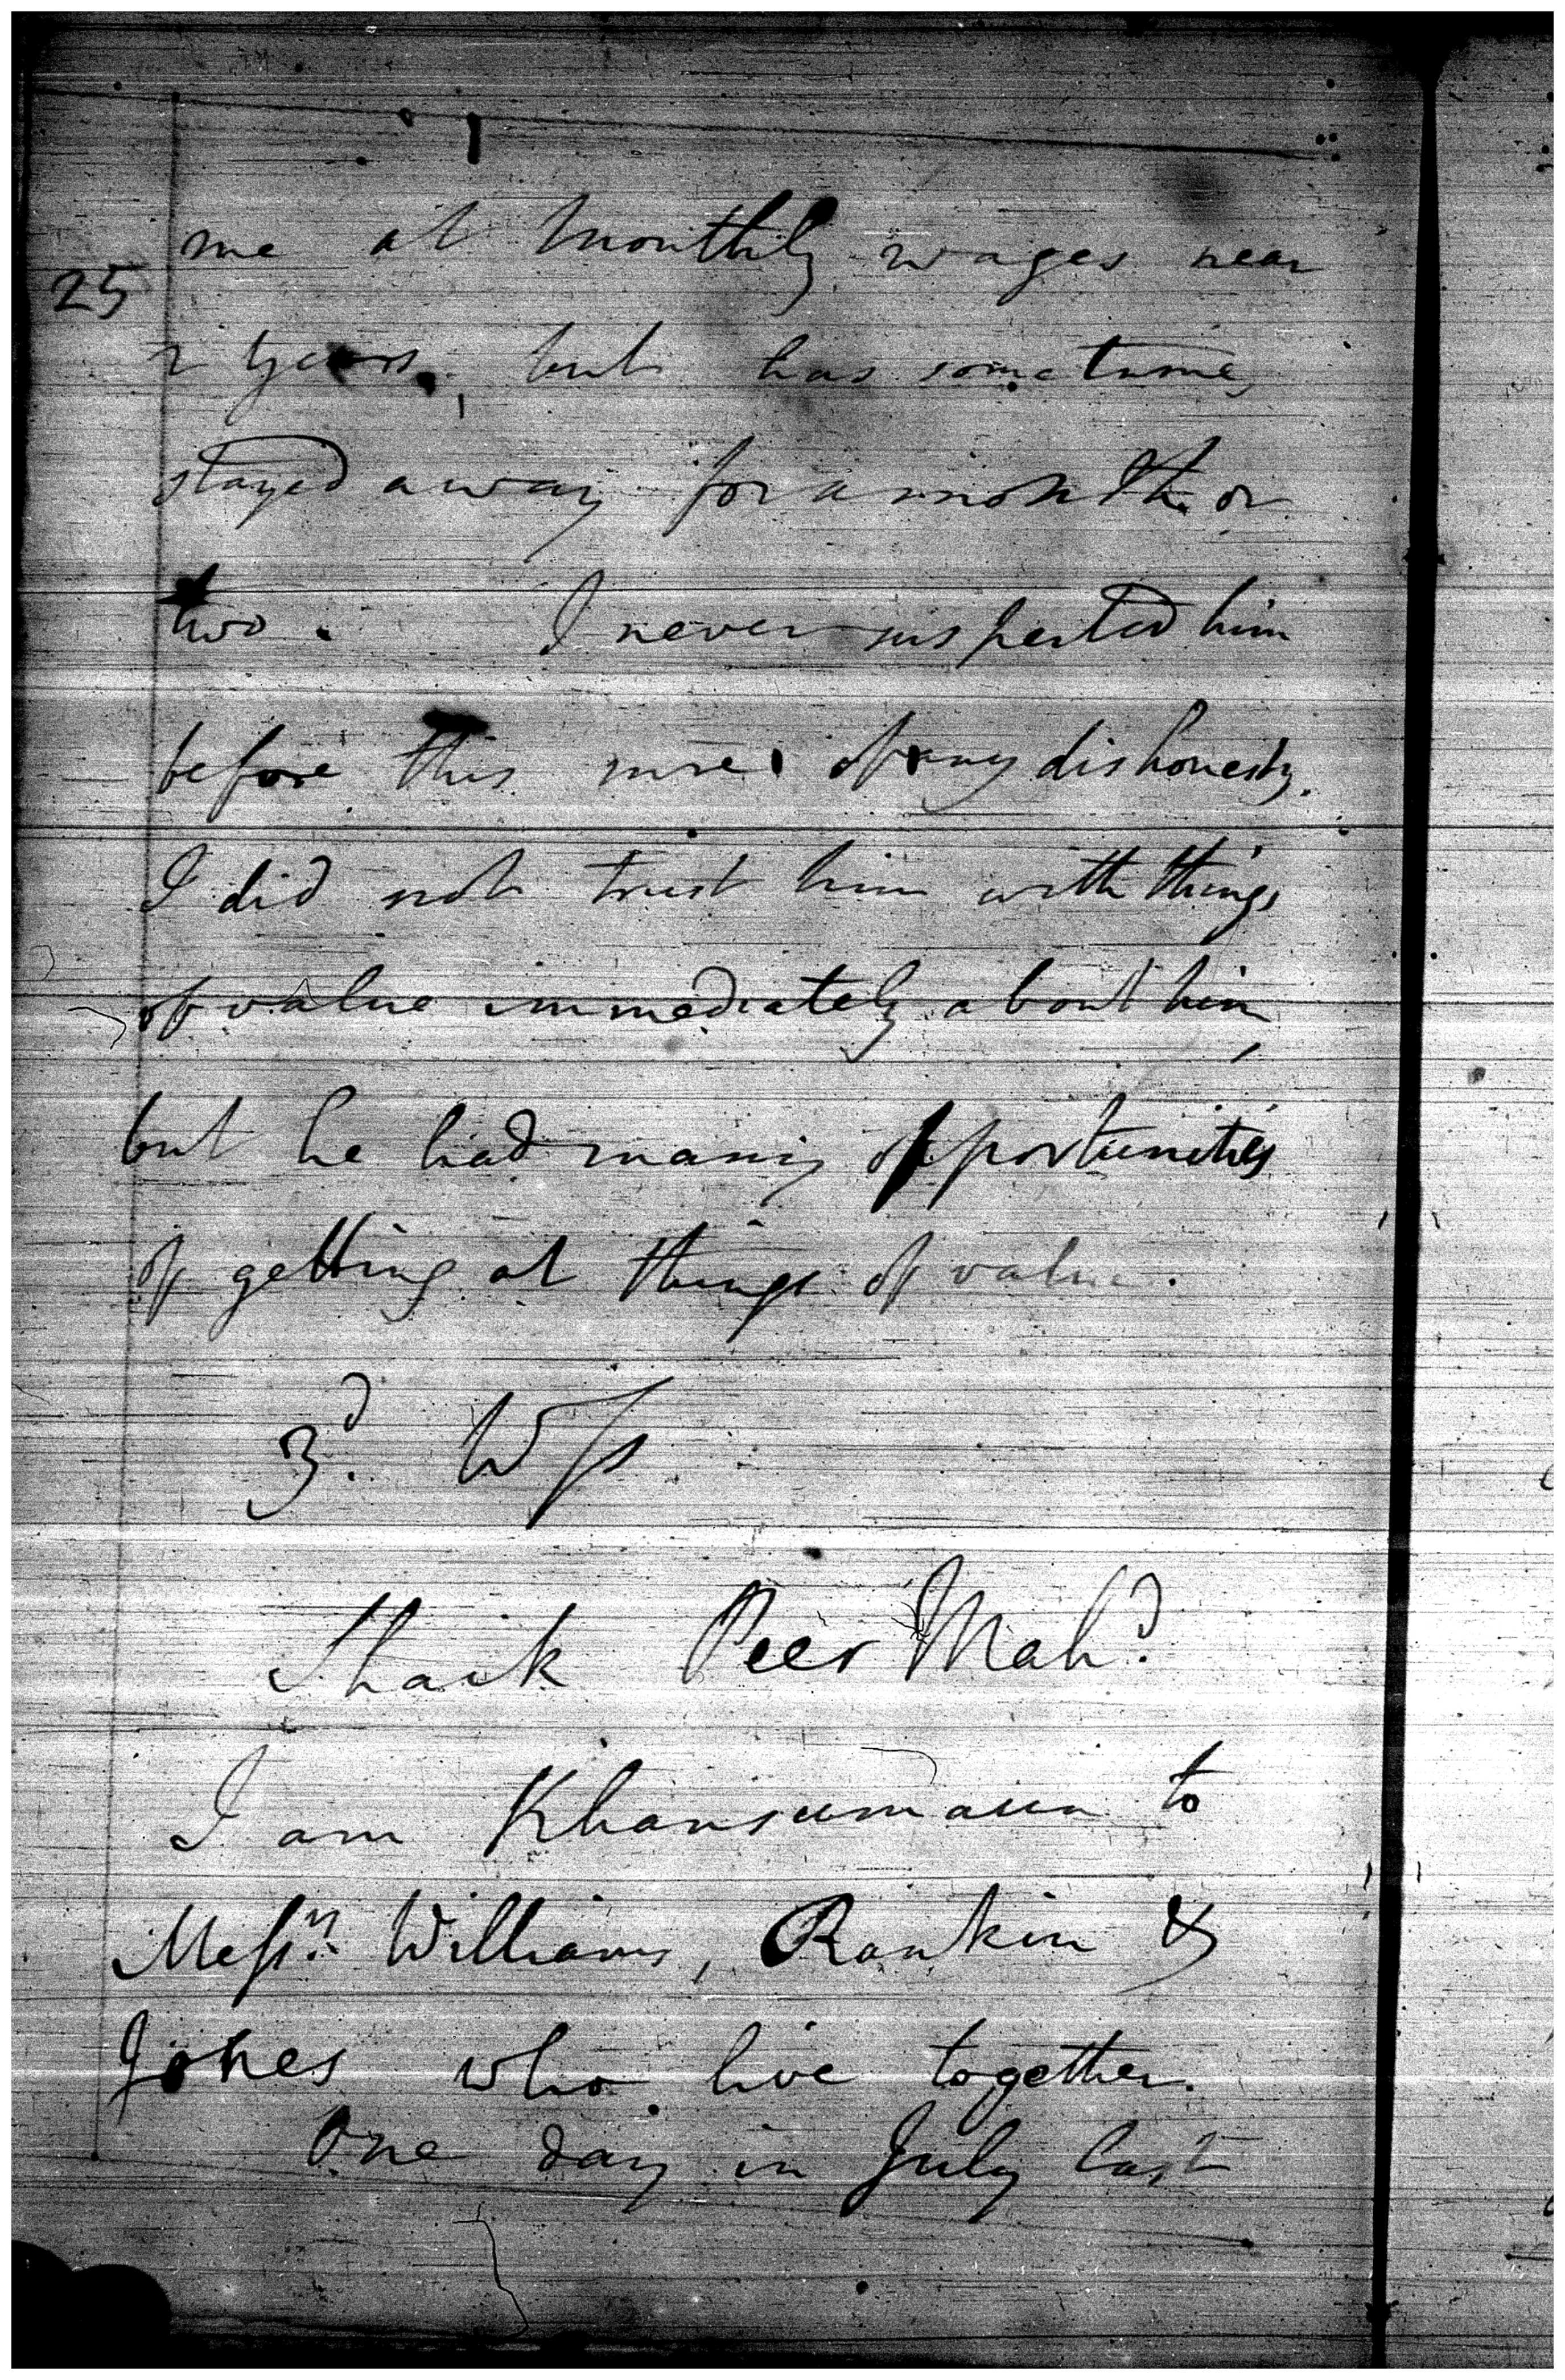 me at monthly wages near
25
2 years, but has sometimes
stayed away for a month or
two. I never suspected him
before this of any dishonesty.
I did not trust him with things
of value immediately about him,
but he had many opportunities
of getting at things of value.
3d. Wſs
Shaik Peer Mahd.
I am Khansumaun to
Meſsrs. Williams, Rankin &
Jones who live together.
One day in July last